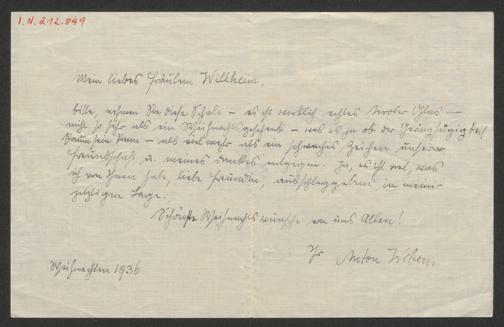 I.N. 212.849
Mein liebes Fräulein Willheim,
bitte, nehmen Sie diese Schale – es ist wirklich echtes Tiroler Glas –
nicht so sehr als ein Weihnachtsgeschenk – was es ja ob der Geringfügigkeit
kaum sein kann – als viel mehr als ein schwaches Zeichen unserer
Freundschaft u. meines Dankes entgegen. Ja, es ist viel, was
ich von Ihnen habe, liebe Freundin, ausschlaggebend in meiner
jetzigen Lage.
Schönste Weihnachtswünsche von uns Allen!
Ihr Anton Webern
Weihnachten 1936